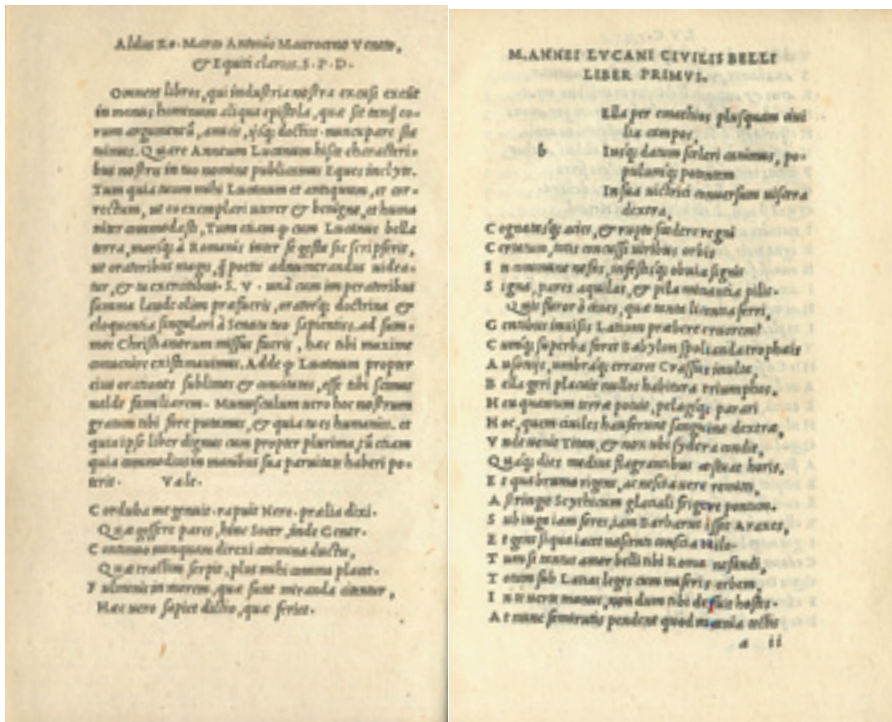 Aldus Ro. Marco Antonio Mauroceno Veneto,
& Equiti clariss. S. P. D.
Omneis libros, qui industria nostra excusi exeunt
in manus hominum aliqua epistola, quae sit tanq̃ eo-
rum argumentũ, amicis, ijsq; doctis nuncupare sta
tuimus. Quare Anneum Lucanum hisce characteri-
bus nostris in tuo nomine publicamus Eques inclyte.
Tum quia tuum mihi Lucanum et antiquum, et cor-
rectum, ut eo exemplari uterer & benigne, et huma
niter commodasti, Tum etiam ꝙ cum Lucanus bella
terra, mariq; à Romanis inter se gesta sic scripserit,
ut oratoribus magis, q̃ poetis adnumerandus uidea-
tur, & tu exercitibus. S. V. unà cum imperatoribus
summa laude olim praefueris, oratorq; doctrina &
eloquentia singulari à Senatu tuo sapientiss. ad sum-
mos Christianorum missus fueris, hac tibi maxime
conuenire existimauimus. Adde ꝙ Lucanum propter
eius orationes sublimes & concitatas, esse tibi scimus
ualde familiarem. Munusculum uero hoc nostrum
gratum tibi fore putamus, & quia tu es humaniss. et
quia ipse liber dignus cum propter plurima, tũ etiam
quia commodius in manibus sua paruitate haberi po-
terit. Vale.
Corduba me genuit. rapuit Nero. praelia dixi.
Quae gessere pares, hinc Socer, inde Gener.
Continuo nunquam direxi carmina ductu,
Quae tractim serpit, plus mihi comma placet.
Fulminis in morem, quae sunt miranda citentur,
Haec uero sapiet dictio, quae feriet.
M. ANNEI LVCANI CIVILIS BELLI
LIBER PRIMVS.
Ella per emathios plusquam ciui
lia campos,
b Iusq; datum sceleri canimus, po-
pulumq; potentem
In sua uictrici conuersum uiscera
dextra,
Cognatasq; acies, & rupto foedere regni
Certatum, totis concussi uiribus orbis
In commune nefas, infestisq; obuia signis
Signa, pares aquilas, & pila minantia pilis.
Quis furor ô ciues, quae tanta licentia ferri,
Gentibus inuisis Latium praebere cruorem?
Cumq; superba foret Babylon spolianda trophaeis
Ausonijs, umbraq; erraret Crassus inulta,
Bella geri placuit nullos habitura triumphos,
Heu quantum terrae potuit, pelagiq; parari
Hoc, quem ciuiles hauserunt sanguine dextrae,
Vnde uenit Titan, & nox ubi sydera condit,
Quaq; dies medius flagrantibus aestuat horis,
Et qua bruma rigens, ac nescia uere remitti,
Astringit Scythicum glaciali frigore pontum.
Sub iuga iam seres, iam Barbarus isset Araxes,
Et gens si qua iacet nascenti conscia Nilo.
Tum si tantus amor belli tibi Roma nefandi,
Totum sub Latias leges cum miseris orbem,
In te uerte manus, non dum tibi defuit hostis.
At nunc semirutis pendent quod moenia tectis
a ii